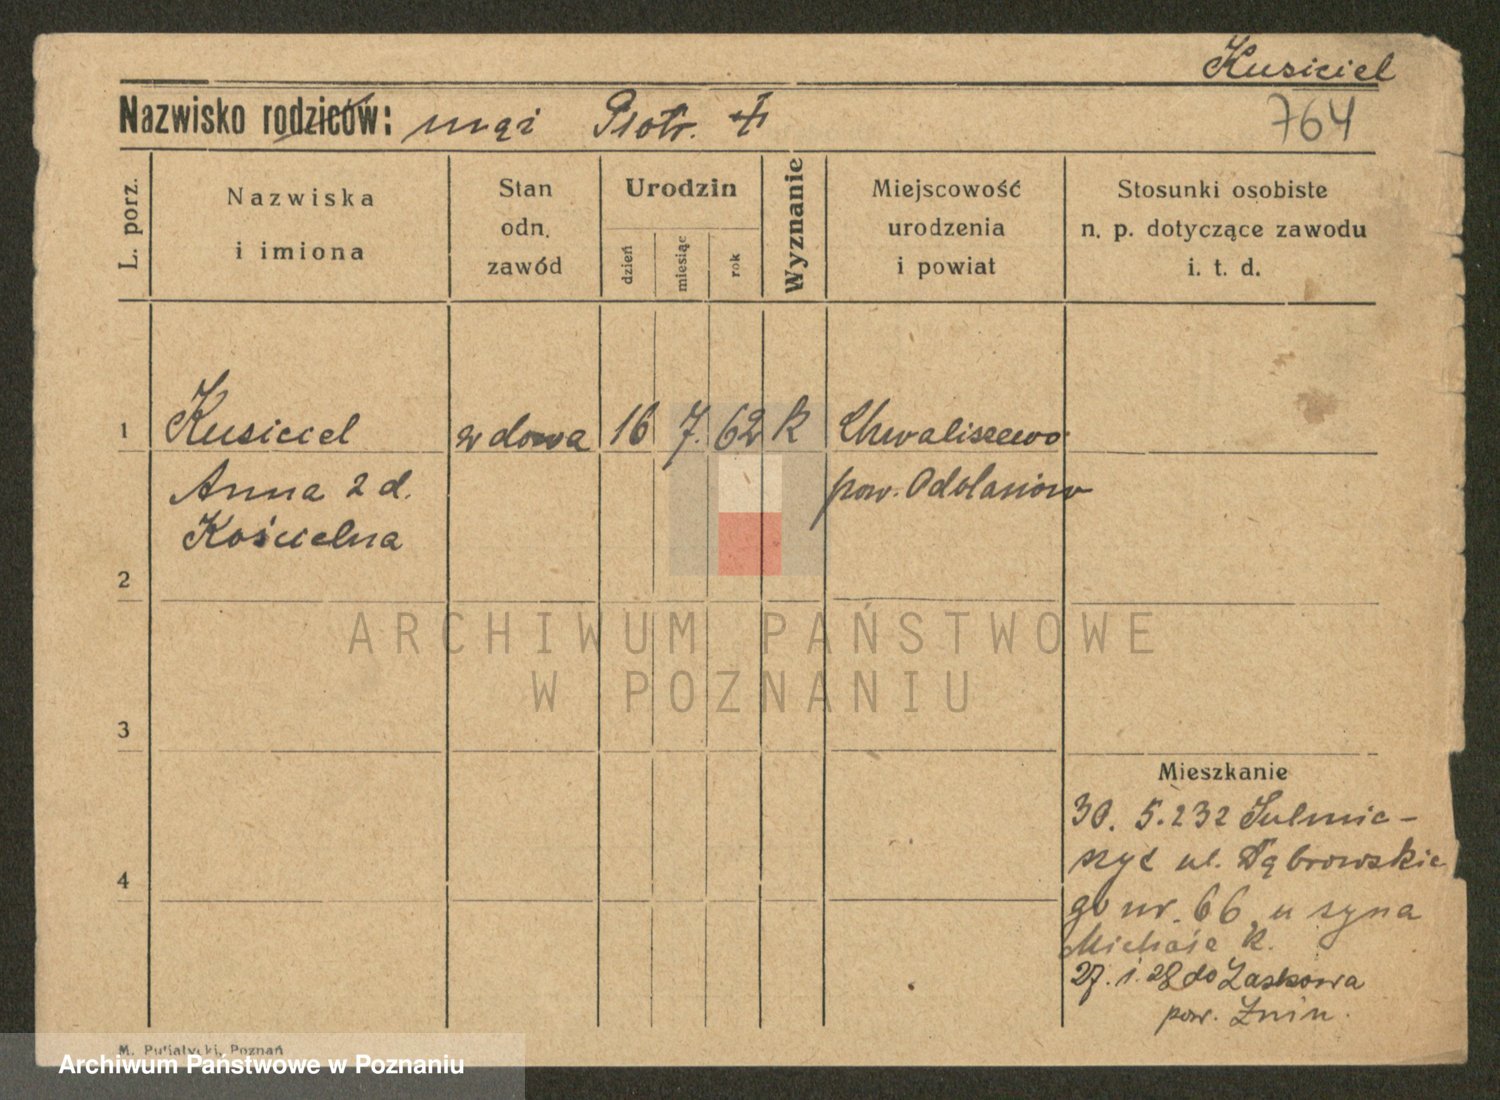 Kusiciel
764
Nazwisko rodziców: mąż Piotr. ✝
L. porz.
Nazwiska
i imiona
Stan
odn.
zawód
Urodzin
dzień
miesiąc
rok
Wyznanie
Miejscowość
urodzenia
i powiat
Stosunki osobiste
n. p. dotyczące zawodu
i. t. d.
1 Kusiciel wdowa 16 7. 62 k Chwaliszewo
Anna 2 d. pow. Odolanów
Kościelna
2
3
4
ARCHIWUM PAŃSTWOWE
W POZNANIU
Mieszkanie
30. 5. 232 Sulmie-
rzyc ul. Dąbrowskie
go nr. 66 u syna
Michała K.
27. 1. 28 do Laskowa
pow. Żnin.
M. Putiatycki, Poznań
Archiwum Państwowe w Poznaniu